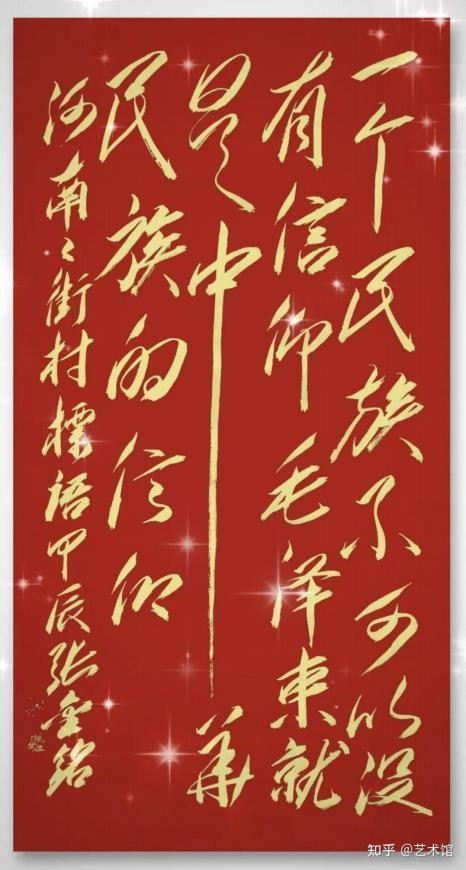 一个民族不可以没
有信仰毛泽东就
是中华
民族的信仰
河南々街村标语甲辰张金铭
知乎 @艺术馆